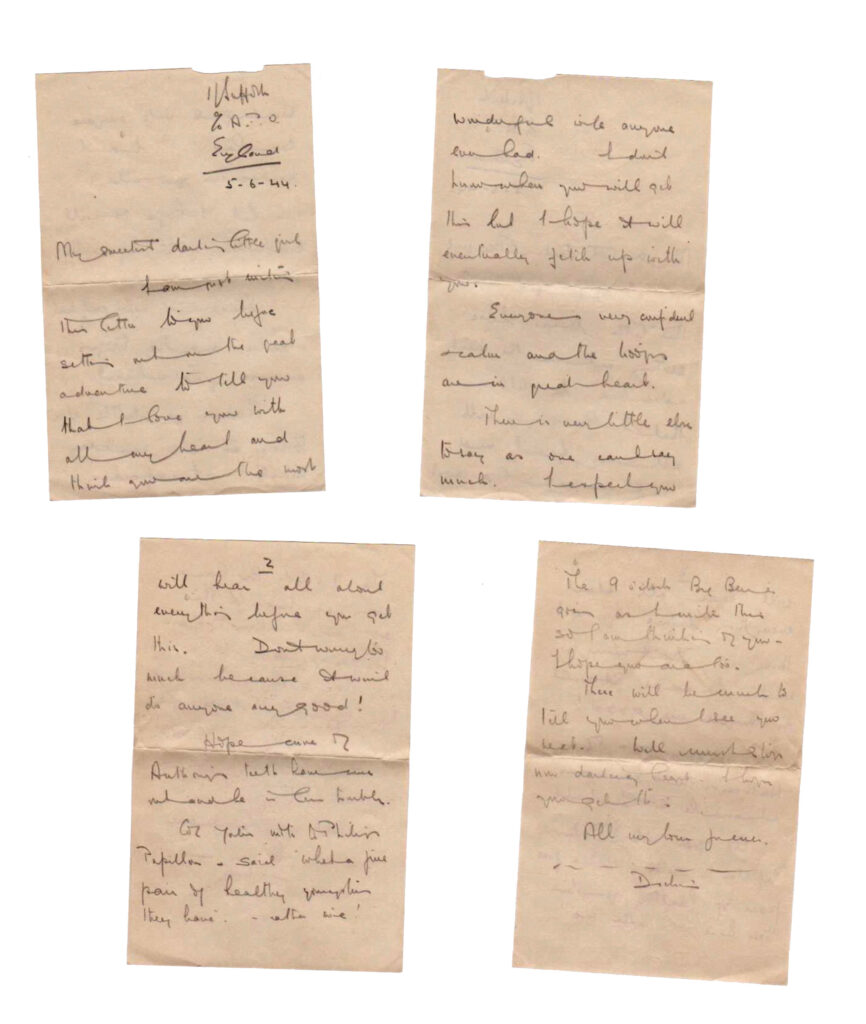 1/Suffolk
℅ A.P.O.
England
5-6-44.
My sweetest darling little girl
I am just writing
this letter to you before
setting out on the great
adventure to tell you
that I love you with
all my heart and
think you are the most
wonderful wife anyone
ever had. I don't
know when you will get
this but I hope it will
eventually fetch up with
you.
Everyone is very confident
& calm and the troops
are in great heart.
There is very little else
to say as one can't say
much. I expect you
2
will hear all about
everything before you get
this. Don't worry too
much because it won't
do anyone any good!
Hope some of
Anthony's teeth have come
out and he is less trouble.
Papillon & said what a fine
pair of healthy youngsters
they have. - rather nice!
The 9 o'clock Big Ben is
going as I write this
so I am thinking of you -
I hope you are too.
There will be much to
tell you when I see you
next. Well must stop
now darling heart. I hope
you get this.
All my love forever.